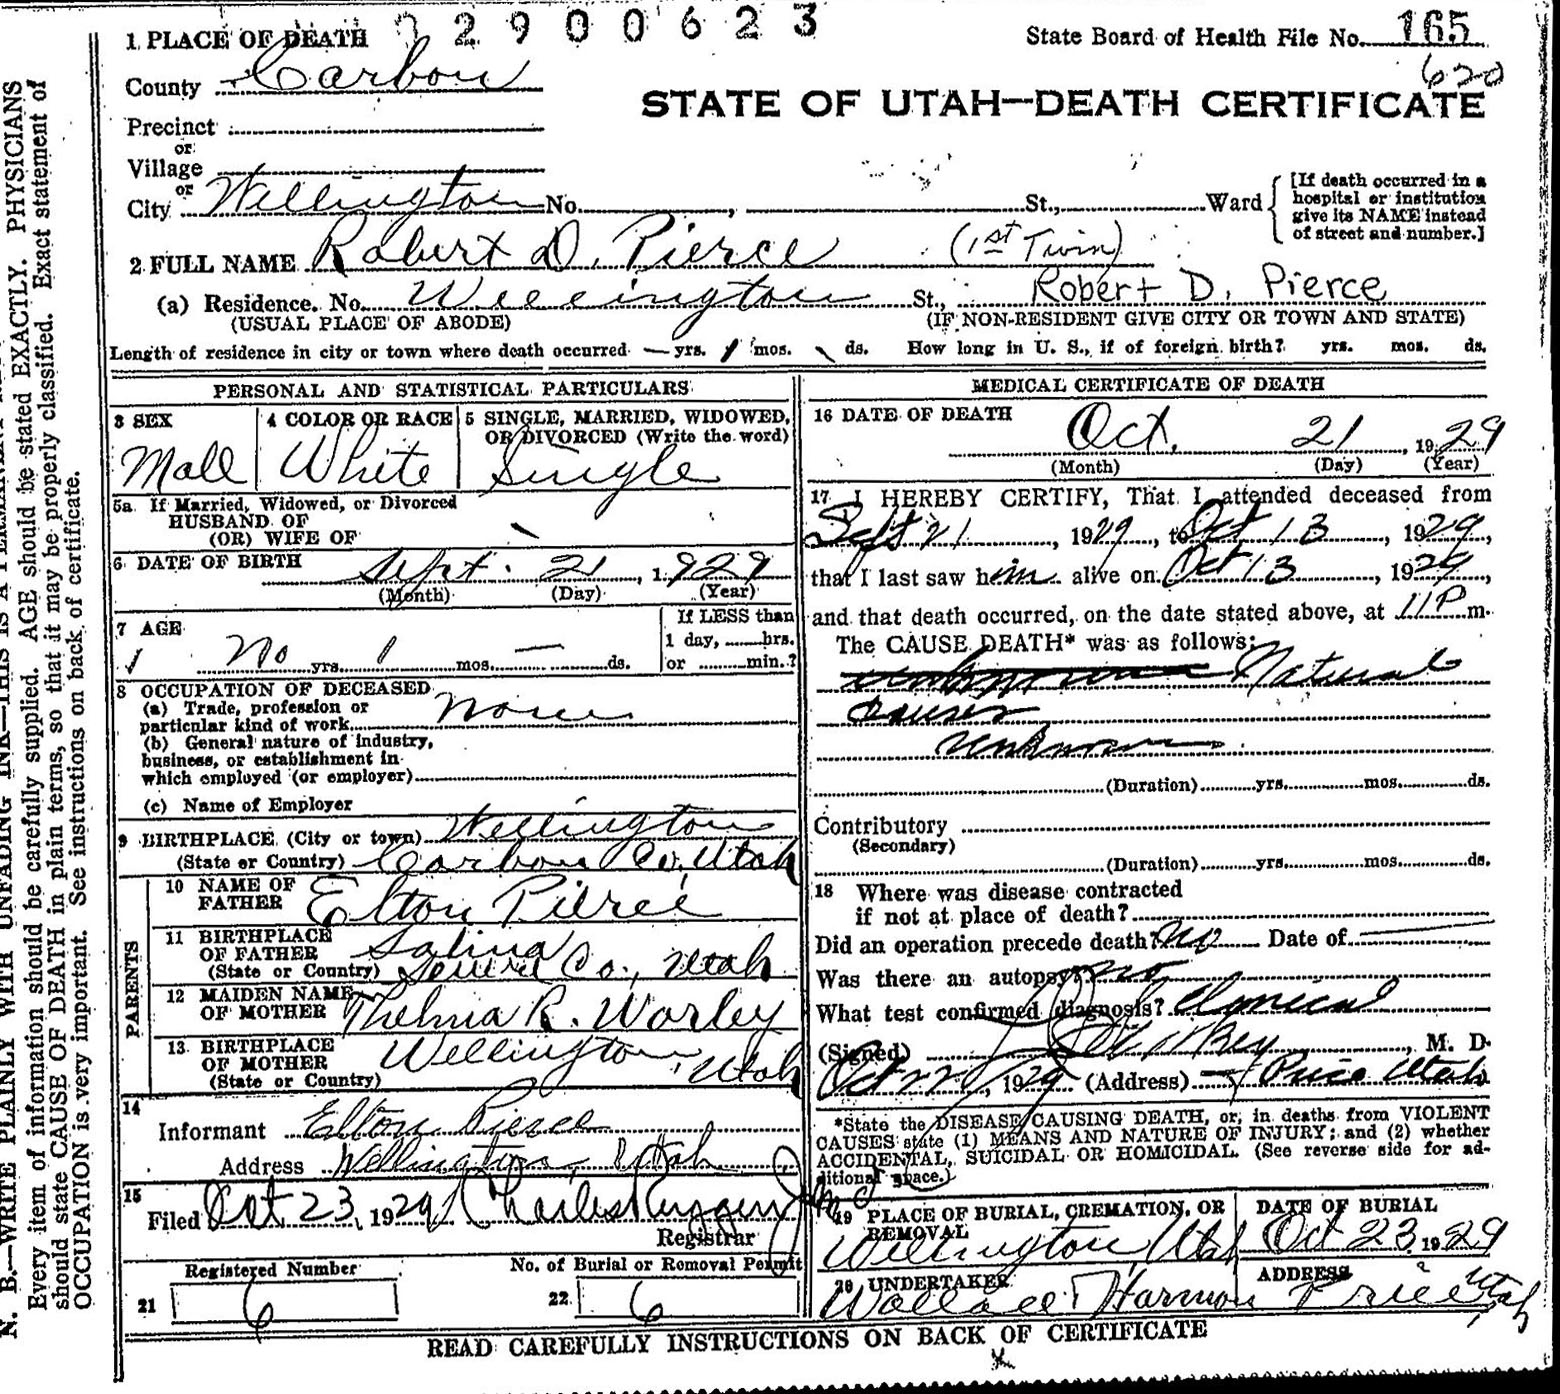 2900623
1 PLACE OF DEATH
State Board of Health File No. 165
620
County Carbon
STATE OF UTAH—DEATH CERTIFICATE
Precinct
or
Village
or
City Wellington No. , St., Ward
[If death occurred in a
hospital or institution
give its NAME instead
of street and number.]
2 FULL NAME Robert D. Pierce (1st Twin)
(a) Residence. No. Wellington St., Robert D. Pierce
(USUAL PLACE OF ABODE) (IF NON-RESIDENT GIVE CITY OR TOWN AND STATE)
Length of residence in city or town where death occurred — yrs. 1 mos. ds. How long in U. S., if of foreign birth? yrs. mos. ds.
PERSONAL AND STATISTICAL PARTICULARS
3 SEX 4 COLOR OR RACE 5 SINGLE, MARRIED, WIDOWED,
OR DIVORCED (Write the word)
Mall White Single
5a If Married, Widowed, or Divorced
HUSBAND OF
(OR) WIFE OF
6 DATE OF BIRTH Sept. 21, 1929
(Month) (Day) (Year)
7 AGE
No yrs. 1 mos. — ds.
If LESS than
1 day, hrs.
or min.?
8 OCCUPATION OF DECEASED
(a) Trade, profession or
particular kind of work none
(b) General nature of industry,
business, or establishment in
which employed (or employer)
(c) Name of Employer
9 BIRTHPLACE (City or town) Wellington
(State or Country) Carbon Co. Utah
PARENTS
10 NAME OF
FATHER Elton Pierce
11 BIRTHPLACE
OF FATHER Salina
(State or Country) Sevier Co., Utah
12 MAIDEN NAME
OF MOTHER Thelma R. Worley
13 BIRTHPLACE
OF MOTHER Wellington, Utah
(State or Country)
14
Informant Elton Pierce
Address Wellington, Utah
15
Filed Oct 23, 1929 Charles Ruggeri Jr md
Registrar
Registered Number No. of Burial or Removal Permit
21 6 22 6
MEDICAL CERTIFICATE OF DEATH
16 DATE OF DEATH
Oct. 21, 1929
(Month) (Day) (Year)
17 I HEREBY CERTIFY, That I attended deceased from
Sept 21, 1929, to Oct 13, 1929,
that I last saw him alive on Oct 13, 1929,
and that death occurred, on the date stated above, at 11 P m.
The CAUSE DEATH* was as follows:
Natural
Causes
unknown
(Duration) yrs. mos. ds.
Contributory
(Secondary)
(Duration) yrs. mos. ds.
18 Where was disease contracted
if not at place of death?
Did an operation precede death? no Date of
Was there an autopsy? no
What test confirmed diagnosis? Clinical
(Signed) , M. D.
Oct 22, 1929 (Address) Price Utah
*State the DISEASE CAUSING DEATH, or, in deaths from VIOLENT
CAUSES state (1) MEANS AND NATURE OF INJURY; and (2) whether
ACCIDENTAL, SUICIDAL OR HOMICIDAL. (See reverse side for ad-
ditional space.)
19 PLACE OF BURIAL, CREMATION, OR
REMOVAL
Wellington Utah
DATE OF BURIAL
Oct 23, 1929
20 UNDERTAKER
Wallace Harmon
ADDRESS
Price Utah
READ CAREFULLY INSTRUCTIONS ON BACK OF CERTIFICATE
N. B.—WRITE PLAINLY WITH UNFADING INK—THIS IS A PERMANENT
Every item of information should be carefully supplied. AGE should be stated EXACTLY. PHYSICIANS
should state CAUSE OF DEATH in plain terms, so that it may be properly classified. Exact statement of
OCCUPATION is very important. See instructions on back of certificate.